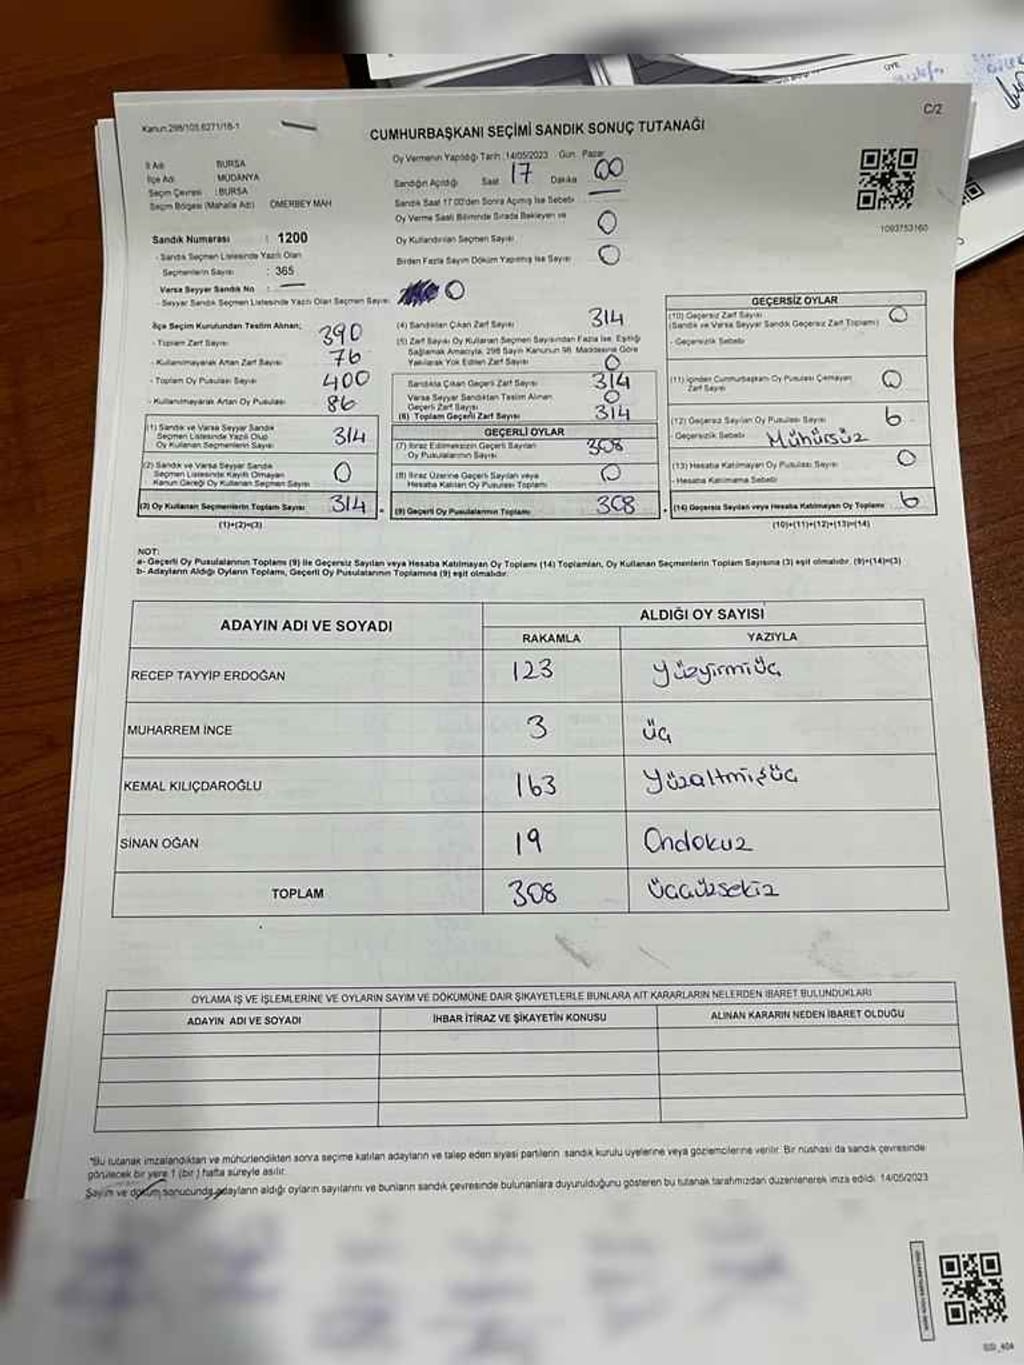 Kanun:298/105,6271/18-1
C/2
CUMHURBAŞKANI SEÇİMİ SANDIK SONUÇ TUTANAĞI
İl Adı : BURSA
İlçe Adı : MUDANYA
Seçim Çevresi : BURSA
Seçim Bölgesi (Mahalle Adı) : ÖMERBEY MAH
Oy Vermenin Yapıldığı Tarih :14/05/2023 Gün: Pazar
Sandığın Açıldığı Saat 17 Dakika 00
Sandık Saat 17:00'den Sonra Açılmış İse Sebebi
Oy Verme Saati Bitiminde Sırada Bekleyen ve
Oy Kullandırılan Seçmen Sayısı 0
Birden Fazla Sayım Döküm Yapılmış İse Sayısı 0
1093753160
Sandık Numarası : 1200
- Sandık Seçmen Listesinde Yazılı Olan
Seçmenlerin Sayısı : 365
Varsa Seyyar Sandık No :
- Seyyar Sandık Seçmen Listesinde Yazılı Olan Seçmen Sayısı 0
İlçe Seçim Kurulundan Teslim Alınan;
- Toplam Zarf Sayısı 390
- Kullanılmayarak Artan Zarf Sayısı 76
- Toplam Oy Pusulası Sayısı 400
- Kullanılmayarak Artan Oy Pusulası 86
(1) Sandık ve Varsa Seyyar Sandık
Seçmen Listesinde Yazılı Olup
Oy Kullanan Seçmenlerin Sayısı 314
(2) Sandık ve Varsa Seyyar Sandık
Seçmen Listesinde Kayıtlı Olmayan
Kanun Gereği Oy Kullanan Seçmen Sayısı 0
(3) Oy Kullanan Seçmenlerin Toplam Sayısı 314
(1)+(2)=(3)
(4) Sandıktan Çıkan Zarf Sayısı 314
(5) Zarf Sayısı Oy Kullanan Seçmen Sayısından Fazla İse, Eşitliği
Sağlamak Amacıyla, 298 Sayılı Kanunun 98. Maddesine Göre
Yakılarak Yok Edilen Zarf Sayısı 0
Sandıkta Çıkan Geçerli Zarf Sayısı 314
Varsa Seyyar Sandıktan Teslim Alınan
Geçerli Zarf Sayısı 0
(6) Toplam Geçerli Zarf Sayısı 314
GEÇERLİ OYLAR
(7) İtiraz Edilmeksizin Geçerli Sayılan
Oy Pusulalarının Sayısı 308
(8) İtiraz Üzerine Geçerli Sayılan veya
Hesaba Katılan Oy Pusulası Toplamı 0
(9) Geçerli Oy Pusulalarının Toplamı 308
GEÇERSİZ OYLAR
(10) Geçersiz Zarf Sayısı 0
(Sandık ve Varsa Seyyar Sandık Geçersiz Zarf Toplamı)
- Geçersizlik Sebebi
(11) İçinden Cumhurbaşkanı Oy Pusulası Çıkmayan
Zarf Sayısı 0
(12) Geçersiz Sayılan Oy Pusulası Sayısı 6
- Geçersizlik Sebebi Mühürsüz
(13) Hesaba Katılmayan Oy Pusulası Sayısı 0
- Hesaba Katılmama Sebebi
(14) Geçersiz Sayılan veya Hesaba Katılmayan Oy Toplamı 6
(10)+(11)+(12)+(13)=(14)
NOT:
a- Geçerli Oy Pusulalarının Toplamı (9) ile Geçersiz Sayılan veya Hesaba Katılmayan Oy Toplamı (14) Toplamları, Oy Kullanan Seçmenlerin Toplam Sayısına (3) eşit olmalıdır. (9)+(14)=(3)
b- Adayların Aldığı Oyların Toplamı, Geçerli Oy Pusulalarının Toplamına (9) eşit olmalıdır.
ADAYIN ADI VE SOYADI ALDIĞI OY SAYISI
RAKAMLA YAZIYLA
RECEP TAYYİP ERDOĞAN 123 Yüzyirmiüç
MUHARREM İNCE 3 üç
KEMAL KILIÇDAROĞLU 163 Yüzaltmışüç
SİNAN OĞAN 19 Ondokuz
TOPLAM 308 üçyüzsekiz
OYLAMA İŞ VE İŞLEMLERİNE VE OYLARIN SAYIM VE DÖKÜMÜNE DAİR ŞİKAYETLERLE BUNLARA AİT KARARLARIN NELERDEN İBARET BULUNDUKLARI
ADAYIN ADI VE SOYADI İHBAR İTİRAZ VE ŞİKAYETİN KONUSU ALINAN KARARIN NEDEN İBARET OLDUĞU
*Bu tutanak imzalandıktan ve mühürlendikten sonra seçime katılan adayların ve talep eden siyasi partilerin sandık kurulu üyelerine veya gözlemcilerine verilir. Bir nüshası da sandık çevresinde
görülecek bir yere 1 (bir) hafta süreyle asılır.
Sayım ve döküm sonucunda adayların aldığı oyların sayılarını ve bunların sandık çevresinde bulunanlara duyurulduğunu gösteren bu tutanak tarafımızdan düzenlenerek imza edildi. 14/05/2023